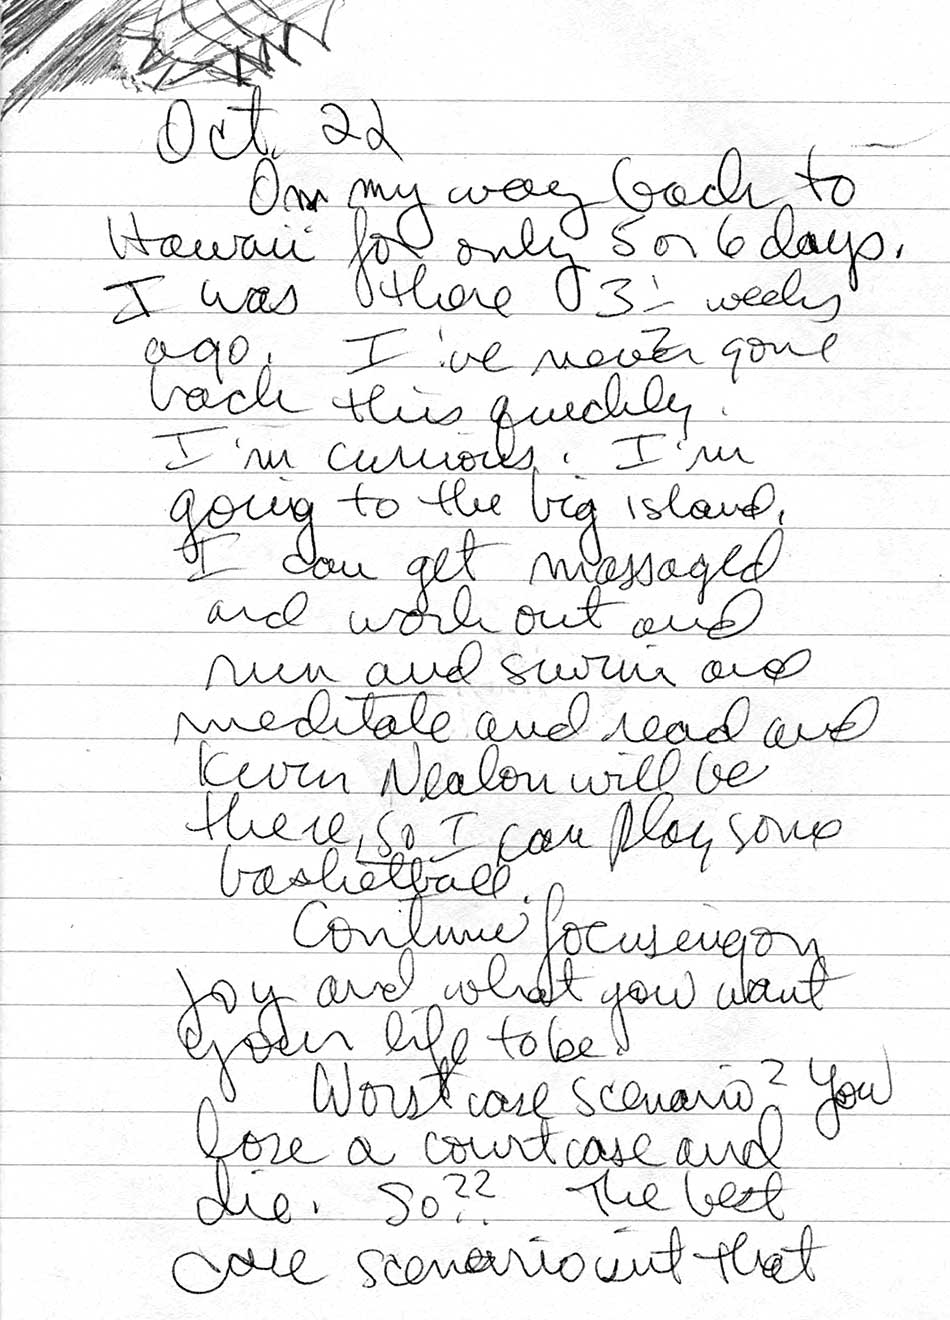 Oct. 22
On my way back to
Hawaii for only 5 or 6 days.
I was there 3 weeks
ago. I've never gone
back this quickly.
I'm curious. I'm
going to the big island.
I can get massaged
and work out and
run and swim and
meditate and read and
Kevin Nealon will be
there, so I can play some
basketball.
Continue focusing on
joy and what you want
your life to be.
Worst case scenario? You
lose a court case and
die. So?? The best
case scenario isn't that